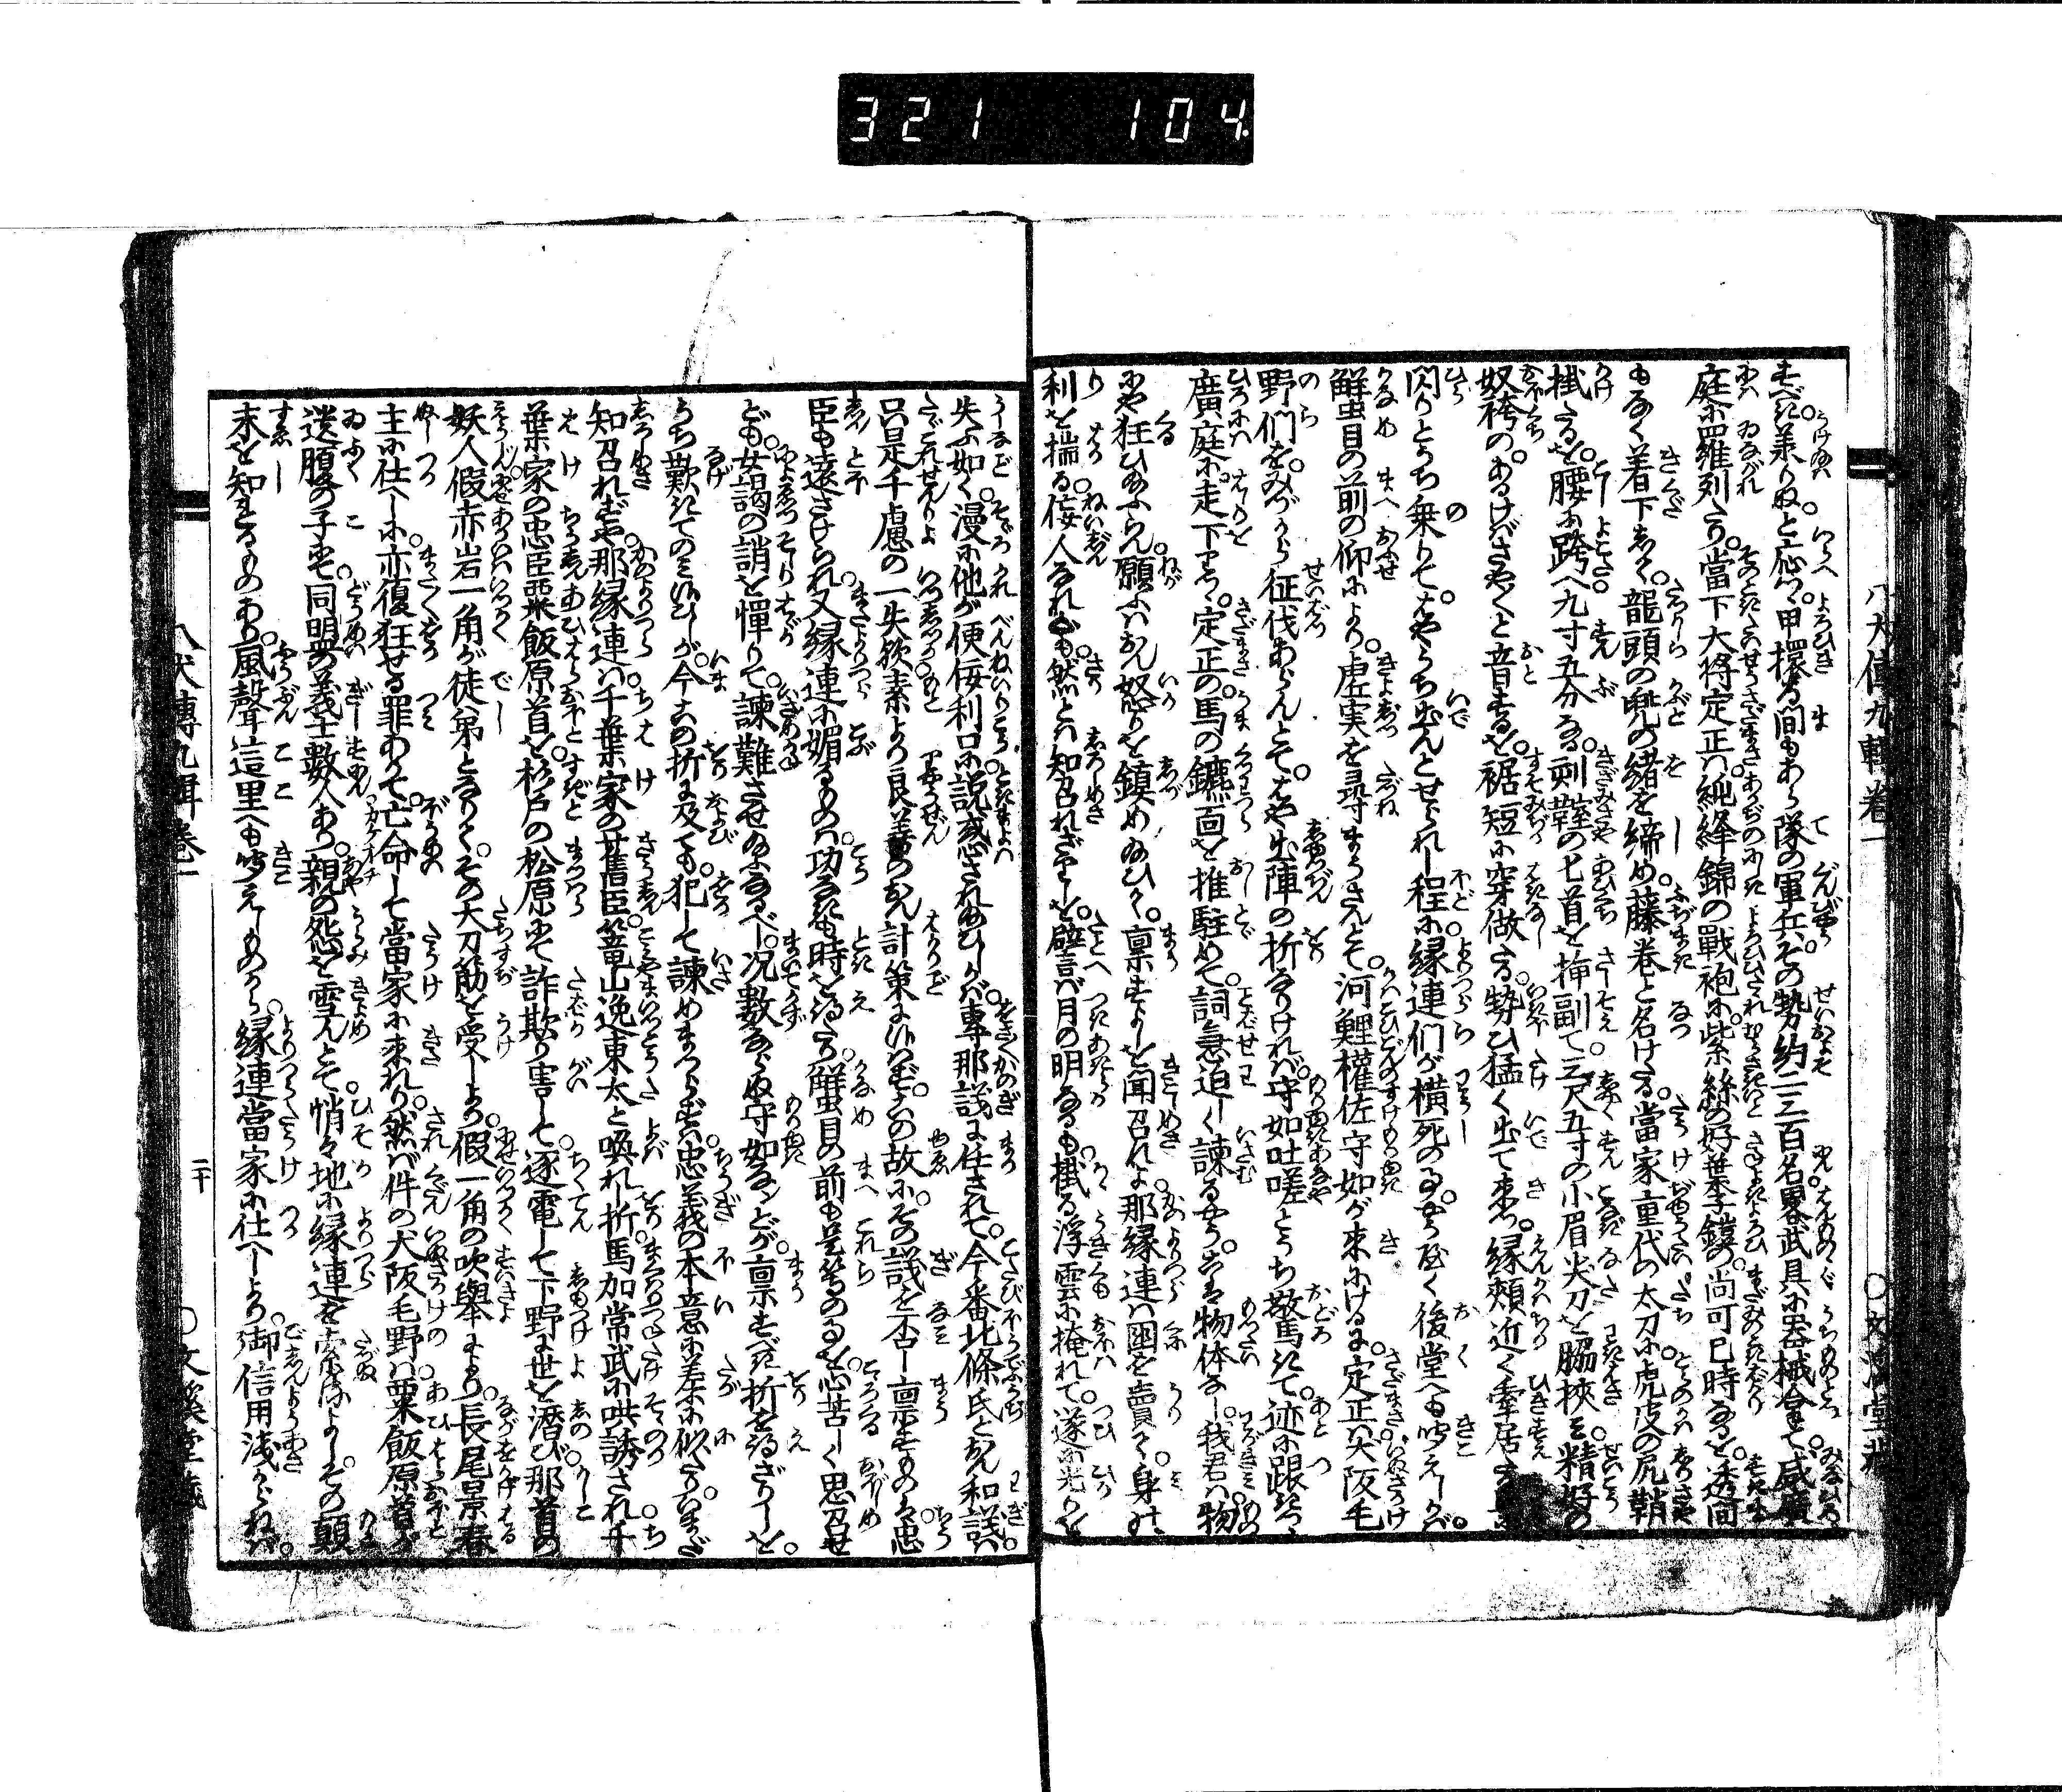 321 104
八犬傳九輯卷一
○文溪堂藏
すべし。美りぬと應つ。甲擐る間もあらぬ隊の軍兵。その勢約二三百名。畧武具小器械。
庭に羅列たり。當下大將定正は。純絳錦の戰袍に。紫絲の好裝束鎧の。尚可巳時なるを。透間
もなく着下して。龍頭の兜の緒を締め。藤巻と名けたる。當家重代の太刀に。虎皮の尻鞘
掛たるを。腰に跨へ。九寸五分なる刺鞘の匕首を挿副て。三尺五寸の小眉尖刀を脇挾み。精好の
奴袴の。あるけばさや〱と音するを。裾短に穿做たる。勢ひ猛く出て來つ。縁頬近く牽居たる
閃りとうち乗りて。はやうち出んとせられし程に。縁連們が横死の事。はや後堂へも聞えしかば。
蟹目の前の仰により。虚実を尋まうさんとて。河鯉權佐守如が來にけるに。定正は犬阪毛
野們を。みづから征伐あらんとて。はや出陣の折なりければ。守如吐嗟とうち驚きて。迹に跟きつゝ
廣庭に。走下りつゝ。定正の。馬の鑣面を推駐めて。詞急迫しく諫るやう。こは物体なし。我君は。物
にや狂ひ給ふらん。願ふはおん怒りを鎮め給ひて。稟すよしを聞召れよ。那縁連は國を賣て。身の
利を揣る佞人なれども。然とは知召れざりしを。譬ば月の明なるも。掛る浮雲に掩れて。遂に光りを
失ふ如く。漫に他が便佞利口に。説惑されぬひしかば。專那議に任されて。今番北條氏とおん和議は。
只是千慮の一失歟。素より良善のおん計策に候はず。この故に。その議を否し稟すものは。忠
臣も遠さけられ。又縁連に媚るものは。功なきも時を得たり。蟹目の前も是等のことを。心苦しく思召せ
ども。女謁の誚を憚りて。諫難させ給ふなるべし。况數ならぬ守如など。稟すべき折を得ざりしを。
うち歎きてのみ候ひしが。今この折に及ても。犯して諫めまつらずは。忠義の本意に差ふに似たり。いまだ
知召れずや。那縁連は。千葉家の舊臣。篭山逸東太と喚れし折。馬加常武に哄誘され。千
葉家の忠臣粟飯原首を。杉戸の松原にて詐欺り害して。逐電して下野に世を潜び。那首の
妖人假赤岩一角が徒弟となりて。その大刀筋を受しより。假一角の吹擧により。長尾景春
主に仕へしに。亦復狂せる罪ありて。亡命して當家に來れり。然ば件の犬阪毛野は。粟飯原首が
遺腹の子にて。同盟の義士數人あり。親の怨を雪んとて。悄々地に縁連を索ねしよし。その顛
末を知れるものあり。風聲這里へも聞えしものから。縁連當家に仕へしより。御信用淺からねば。
八犬傳九輯卷一
二十
○文溪堂藏